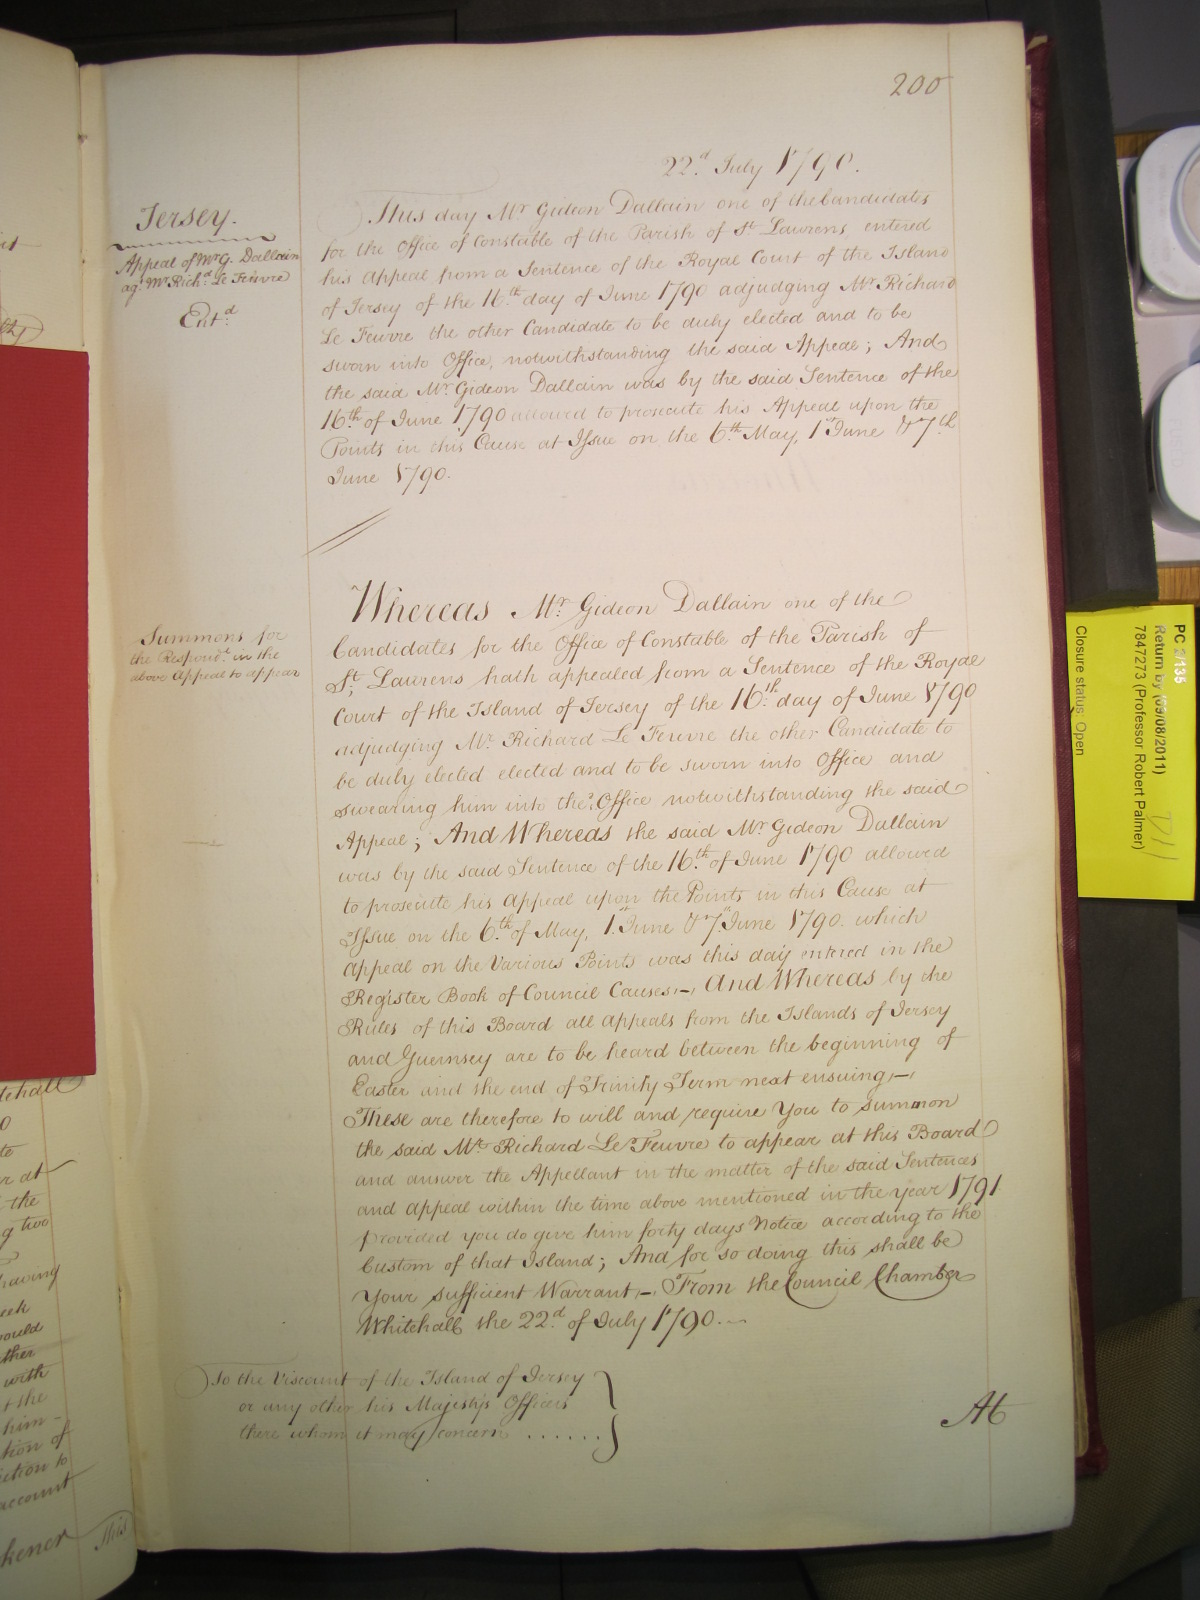 200
22.d July 1790.
Jersey.
Appeal of Mr G. Dallain
ag.t Mr Rich.d Le Feuvre
Ent.d
This day Mr Gideon Dallain one of the Candidates
for the Office of Constable of the Parish of St. Laurens, entered
his Appeal from a Sentence of the Royal Court of the Island
of Jersey of the 16.th day of June 1790 adjudging Mr. Richard
Le Feuvre the other Candidate to be duly elected and to be
sworn into Office, notwithstanding the said Appeal; And
the said Mr. Gideon Dallain was by the said Sentence of the
16.th of June 1790 allowed to prosecute his Appeal upon the
Points in this Cause at Issue on the 6.th May, 1.st June & 7.th
June 1790.
Summons for
the Respond.t in the
above Appeal to appear
Whereas Mr. Gideon Dallain one of the
Candidates for the Office of Constable of the Parish of
St. Laurens hath appealed from a Sentence of the Royal
Court of the Island of Jersey of the 16.th day of June 1790
adjudging Mr. Richard Le Feuvre the other Candidate to
be duly elected elected and to be sworn into Office and
swearing him into the Office notwithstanding the said
Appeal; And Whereas the said Mr. Gideon Dallain
was by the said Sentence of the 16.th of June 1790 allowed
to prosecute his Appeal upon the Points in this Cause at
Issue on the 6.th of May, 1.st June & 7.th June 1790. which
Appeal on the Various Points was this day entered in the
Register Book of Council Causes,—, And Whereas by the
Rules of this Board all Appeals from the Islands of Jersey
and Guernsey are to be heard between the beginning of
Easter and the end of Trinity Term next ensuing,—,
These are therefore to will and require You to summon
the said Mr. Richard Le Feuvre to appear at this Board
and answer the Appellant in the matter of the said Sentences
and appeal within the time above mentioned in the year 1791
provided you do give him forty days Notice according to the
Custom of that Island; And for so doing this shall be
Your sufficient Warrant,—, From the Council Chamber
Whitehall the 22.d of July 1790.—
To the Viscount of the Island of Jersey
or any other his Majestys Officers
there whom it may concern ......
At
PC 2/135
Return by (09/08/2011)
7847273 (Professor Robert Palmer)
Closure status: Open
tehall
er at
the
g two
having
eek
would
ther
with
t the
him -
tion of
iction to
account
kener
This